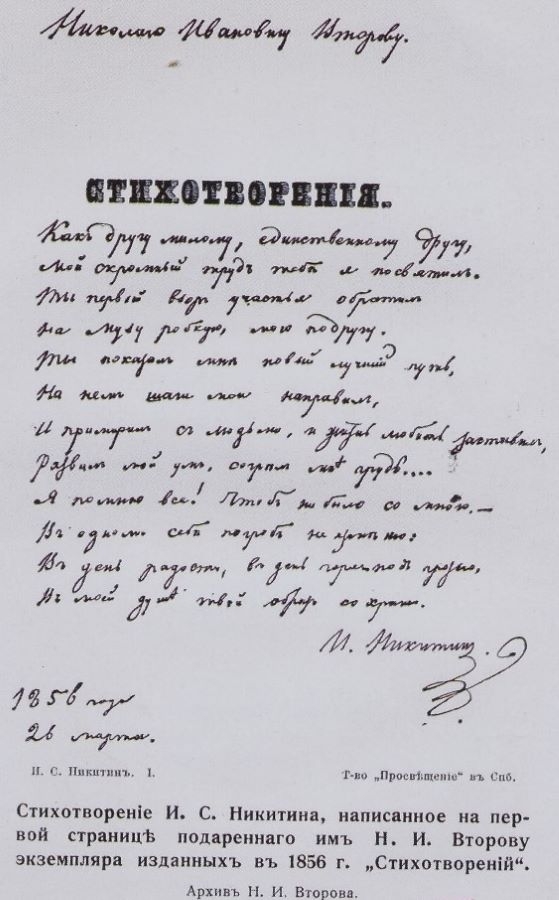 Николаю Ивановичу Второву.
СТИХОТВОРЕНІЯ.
Какъ другу милому, единственному другу,
Мой скромный трудъ тебѣ я посвятилъ.
Ты первый взоръ участья обратилъ
На музу робкую, мою подругу.
Ты показалъ мнѣ новый лучшій путь,
На немъ шаги мои направилъ,
И примирилъ съ людьми, и жизнь любить заставилъ,
Развилъ мой умъ, согрѣлъ мнѣ грудь....
Я помню все! Чтобъ ни было со мною. —
Въ одномъ себѣ по гробъ не измѣню:
Въ день радости, въ день горя подъ грозою,
Въ моей душѣ твой образъ сохраню.
И. Никитинъ.
1856 года
26 марта.
И. С. Никитинъ. I.
Т-во „Просвѣщеніе“ въ Спб.
Стихотвореніе И. С. Никитина, написанное на пер-
вой страницѣ подареннаго имъ Н. И. Второву
экземпляра изданныхъ въ 1856 г. „Стихотвореній“.
Архивъ Н. И. Второва.